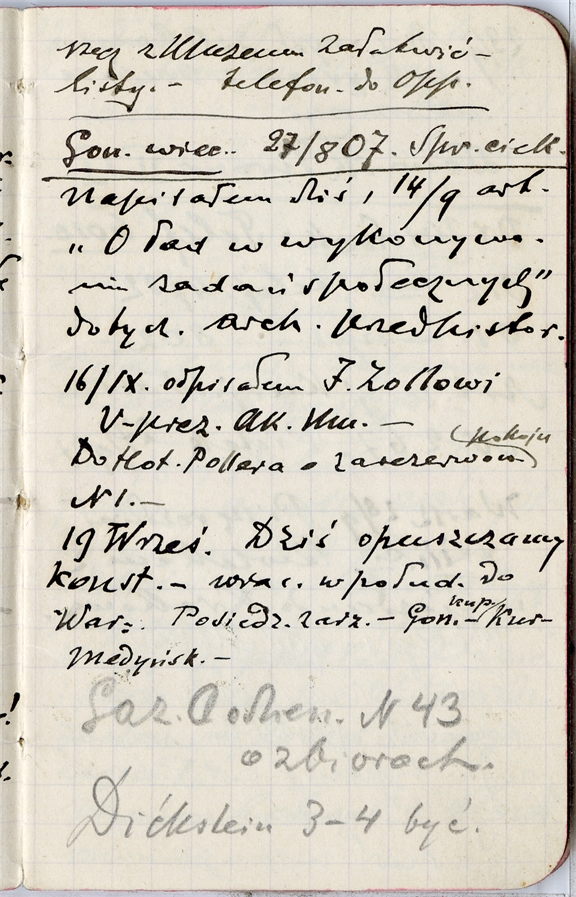 z Muzeum załatwić –
listy. – telefon. do Opp.
Gon. wiecz. 27/8 07. Spr. ciek.
Napisałem dziś, 14/9 art.
„O ład w wykonywa-
niu zadań społecznych"
dotycz. arch. przedhistor.
16/IX. odpisałem F. Zollowi
V-prez. Ak. Um. –
Do Hot. Pollera o zarezerwow. (pokoju
N 1. –
19 Wrześ. Dziś opuszczamy
Konst. – wrac. w połud. do
War. Posiedz. zarz. – Gon. – kup. Kur–
Medycisk. –
Gaz. Codzien. N 43
o zbiorach.
Dickstein 3–4 być.